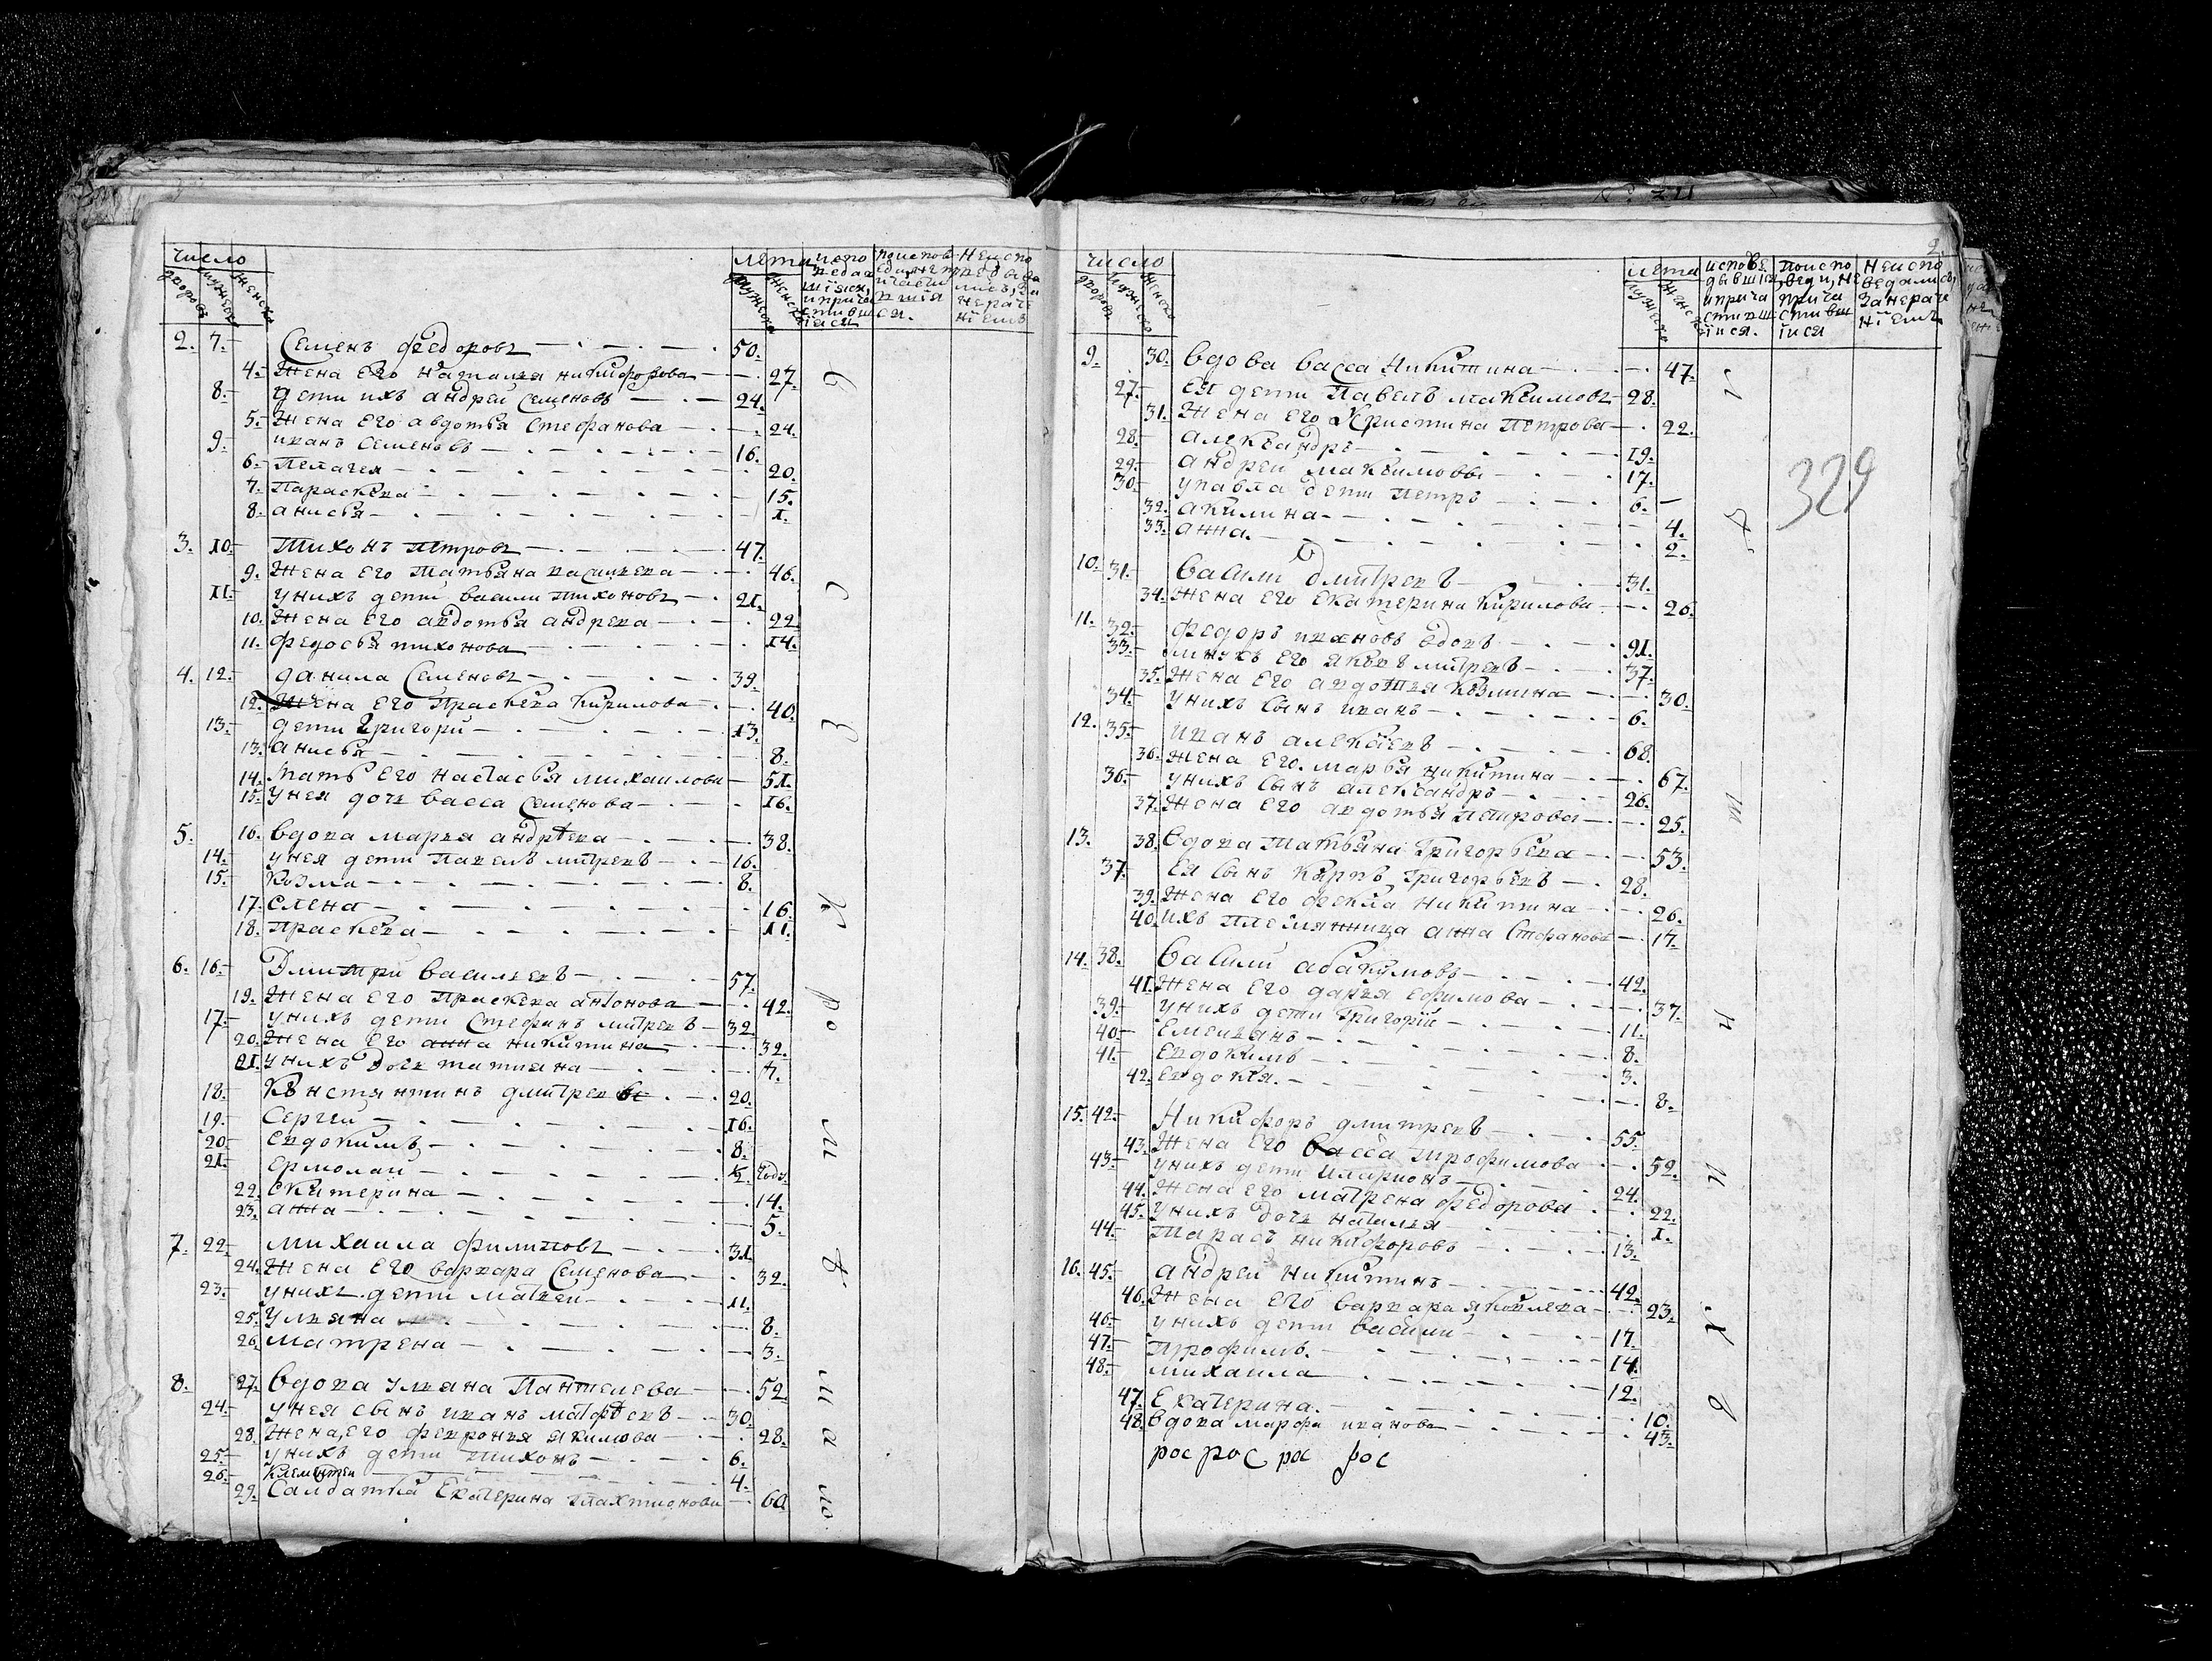 число
лета
дворовъ
мужеска
женска
мужеска
женска
2. 7. Семенъ федоровъ 50.
4. Жена Его наталья никифорова 27.
8. дети ихъ андреи Семеновъ 24.
5. Жена Его авдотья Стефанова 24.
9. иванъ Семеновъ 16.
6. Пелагея 20.
7. Параскева 15.
8. анисья 1.
3. 10. Тихонъ Петровъ 47.
9. Жена Его Татьяна васильева 46.
11. унихъ дети васили тихоновъ 21.
10. Жена Его авдотья андрева 22.
11. федосья тихонова 14.
4. 12. данила Семеновъ 39.
12. Жена Его Праскева Кирилова 40.
13. дети Григори 13.
13. анисья 8.
14. мать Его настасья михаилова 51.
15. унея дочь васса Семенова 16.
5. 16. вдова марья андрѣева 38.
14. унея дети Павелъ митревъ 16.
15. Козма 8.
17. Елена 16.
18. Праскева 11.
6. 16. Дмитри васильевъ 57.
19. Жена Его Праскева антонова 42.
17. унихъ дети Стефанъ митревъ 32.
20. Жена Его анна никитина 32.
21. унихъ дочь татияна 7.
18. Констянтинъ дмитревъ 20.
19. Сергеи 16.
20. Евдокимъ 8.
21. Ермолаи ½ году.
22. Екатерина 14.
23. анна 5.
7. 22. михаила филиповъ 31.
24. Жена Его варвара Семенова 32.
23. унихъ дети матвеи 11.
25. Ульяна 8.
26. матрена 3.
8. 27. вдова ульяна Пантелева 52.
24. унея сынъ иванъ матфѣевъ 30.
28. Жена Его февронья якимова 28.
25. унихъ дети тихонъ 6.
26. Клементеи 4.
29. Салдатка Екатерина 60
9. 30. вдова васса Никитина 47.
27. Ея дети Павелъ максимовъ 28.
31. Жена Его Христина Петрова 22.
28. александръ 19.
29. андреи максимовы 17.
30. упавла дети петръ 6.
32. акилина 4.
33. анна. 2.
10. 31. васили дмитревъ 31.
34. Жена Его Екатерина Кирилова 20.
11. 32. федоръ ивановъ вдовъ 91.
33. внукъ Его яковъ митревъ 37.
35. Жена Его авдотья Козмина 30.
34. унихъ сынъ иванъ 6.
12. 35. иванъ алексеевъ 68.
36. Жена Его марья никитина 67.
36. унихъ сынъ александръ 26.
37. Жена Его авдотья петрова 25.
13. 38. вдова Татьяна Григорьева 53.
37. Ея сынъ Карпъ Григорьевъ 28.
39. Жена Его фекла никитина 26.
40. ихъ племянница анна Стефанова 17.
14. 38. васили абакумовъ 42.
41. Жена Его дарья Ефимова 37.
39. унихъ дети Григорiи 11.
40. Емельянъ 8.
41. Евдокимъ 3.
42. Евдокия. 8.
15. 42. Никифоръ дмитревъ 55.
43. Жена Его васса трофимова 52.
43. унихъ дети иларионъ 24.
44. Жена Его матрена федорова 22.
45. унихъ дочь наталья 1.
44. Тарасъ никифоровъ 13.
16. 45. андреи никитинъ 42.
46. Жена Его варвара яковлева 23.
46. унихъ дети васили 17.
47. Трофимъ. 14.
48. михаила 12.
47. Екатерина. 10.
48. вдова марфа иванова 43.
рос рос рос рос
329